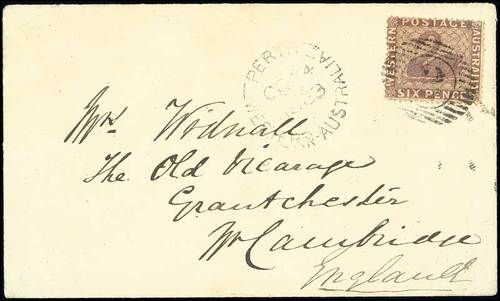 WESTERN POSTAGE AUSTRALIA
SIX PENCE
PERTH
WESTERN-AUSTRALIA
Mrs Widnall
The Old Vicarage
Grantchester
Nr Cambridge
England